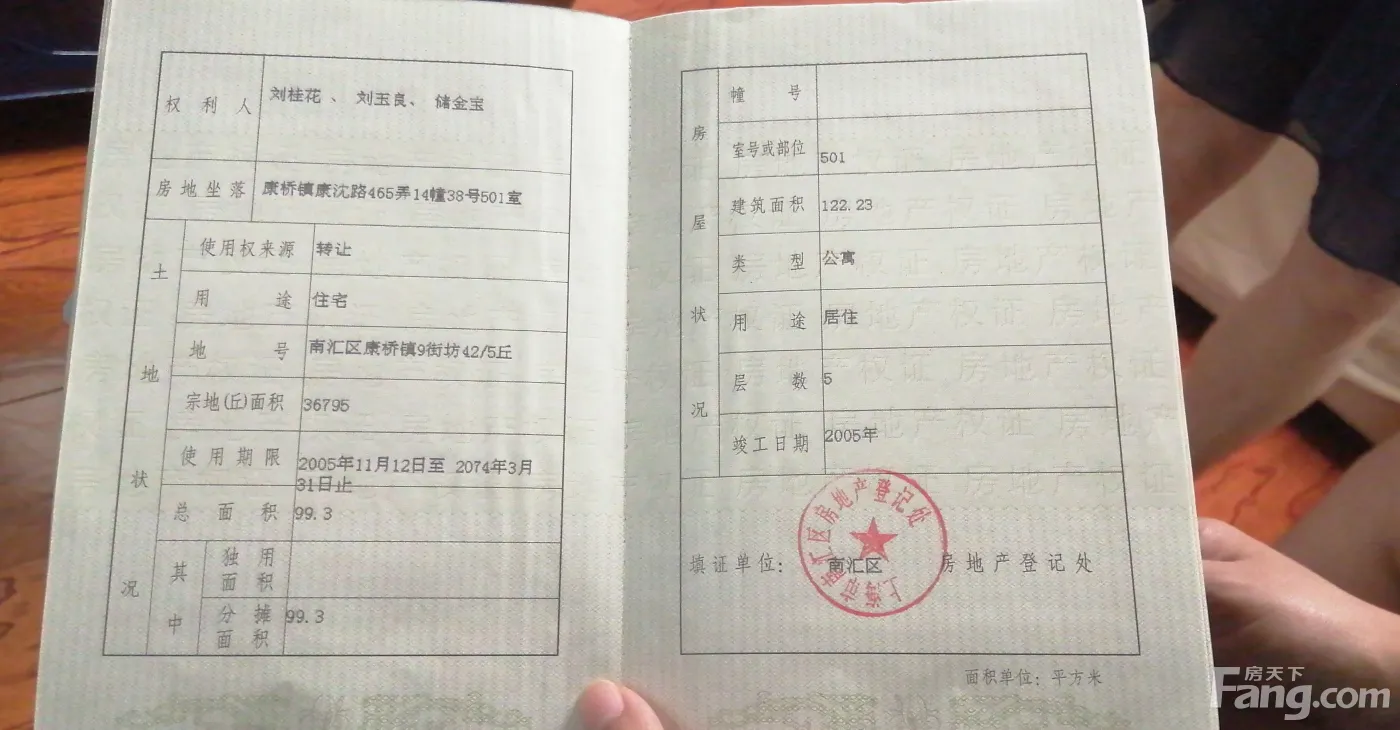 权利人 刘桂花、刘玉良、储金宝
房地坐落 康桥镇康沈路465弄14幢38号501室
土地状况
使用权来源 转让
用途 住宅
地号 南汇区康桥镇9街坊42/5丘
宗地(丘)面积 36795
使用期限 2005年11月12日至 2074年3月
31日止
总面积 99.3
其中
独用
面积
分摊 99.3
面积
房屋状况
幢号
室号或部位 501
建筑面积 122.23
类型 公寓
用途 居住
层数 5
竣工日期 2005年
上海市南汇区房地产登记处
填证单位: 南汇区 房地产登记处
面积单位: 平方米
房天下
Fang.com